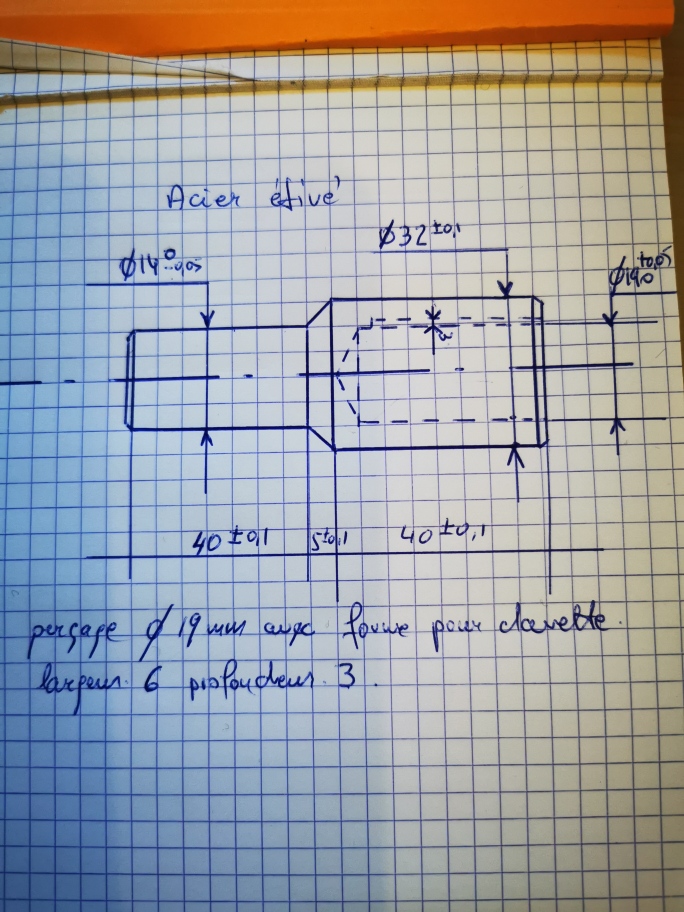 Acier étiré
φ32 ±0,1
φ14 0 -0,05
φ19 +0,05 0
40 ±0,1 5±0,1 40 ±0,1
perçage φ 19 mm avec forme pour clavette.
largeur 6 profondeur 3.